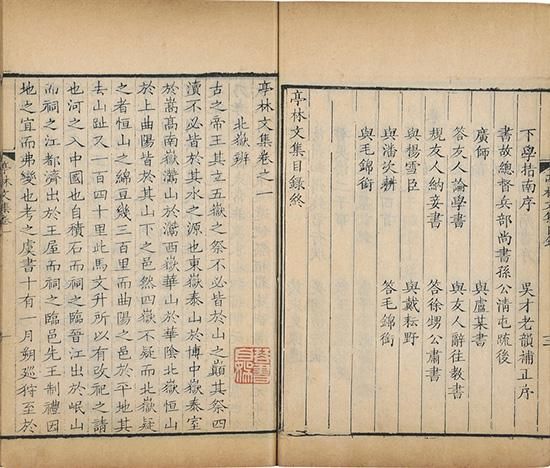 下學指南序　吳才老韻補正序
書故總督兵部尚書孫公清屯疏後
廣師　與盧某書
答友人論學書　與友人辭往教書
規友人納妾書　答徐甥公肅書
與楊雪臣　與戴耘野
與潘次耕　答毛錦銜
與毛錦銜
亭林文集目錄終
亭林文集卷之一
北嶽辨
古之帝王其立五嶽之祭不必皆於山之巔其祭四
瀆不必皆於其水之源也東嶽泰山於博中嶽泰室
於嵩高南嶽灊山於灊西嶽華山於華陰北嶽恒山
於上曲陽皆於其山下之邑然四嶽不疑而北嶽疑
之者恒山之綿亘幾三百里而曲陽之邑於平地其
去山趾又一百四十里此馬文升所以有改祀之請
也河之入中國也自積石而祠之臨晉江出於岷山
而祠之江都濟出於王屋而祠之臨邑先王制禮因
地之宜而弗變也考之虞書十有一月朔巡狩至於